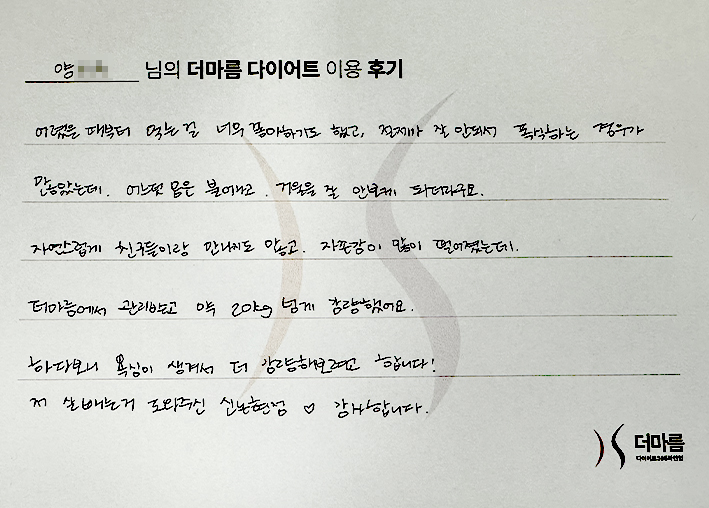 양 님의 더마름 다이어트 이용 후기
어렸을 때부터 먹는걸 너무 좋아하기도 했고, 절제가 잘 안돼서 폭식하는 경우가
많았는데. 어느덧 몸은 불어있고. 거울을 잘 안보게 되더라구요.
자연스럽게 친구들이랑 만나지도 않고. 자존감이 많이 떨어졌는데.
더마름에서 관리받고 약 20kg 넘게 감량했어요.
하다보니 욕심이 생겨서 더 감량해보려고 합니다!
저 살빼는거 도와주신 신논현점 ♡ 감사합니다.
더마름